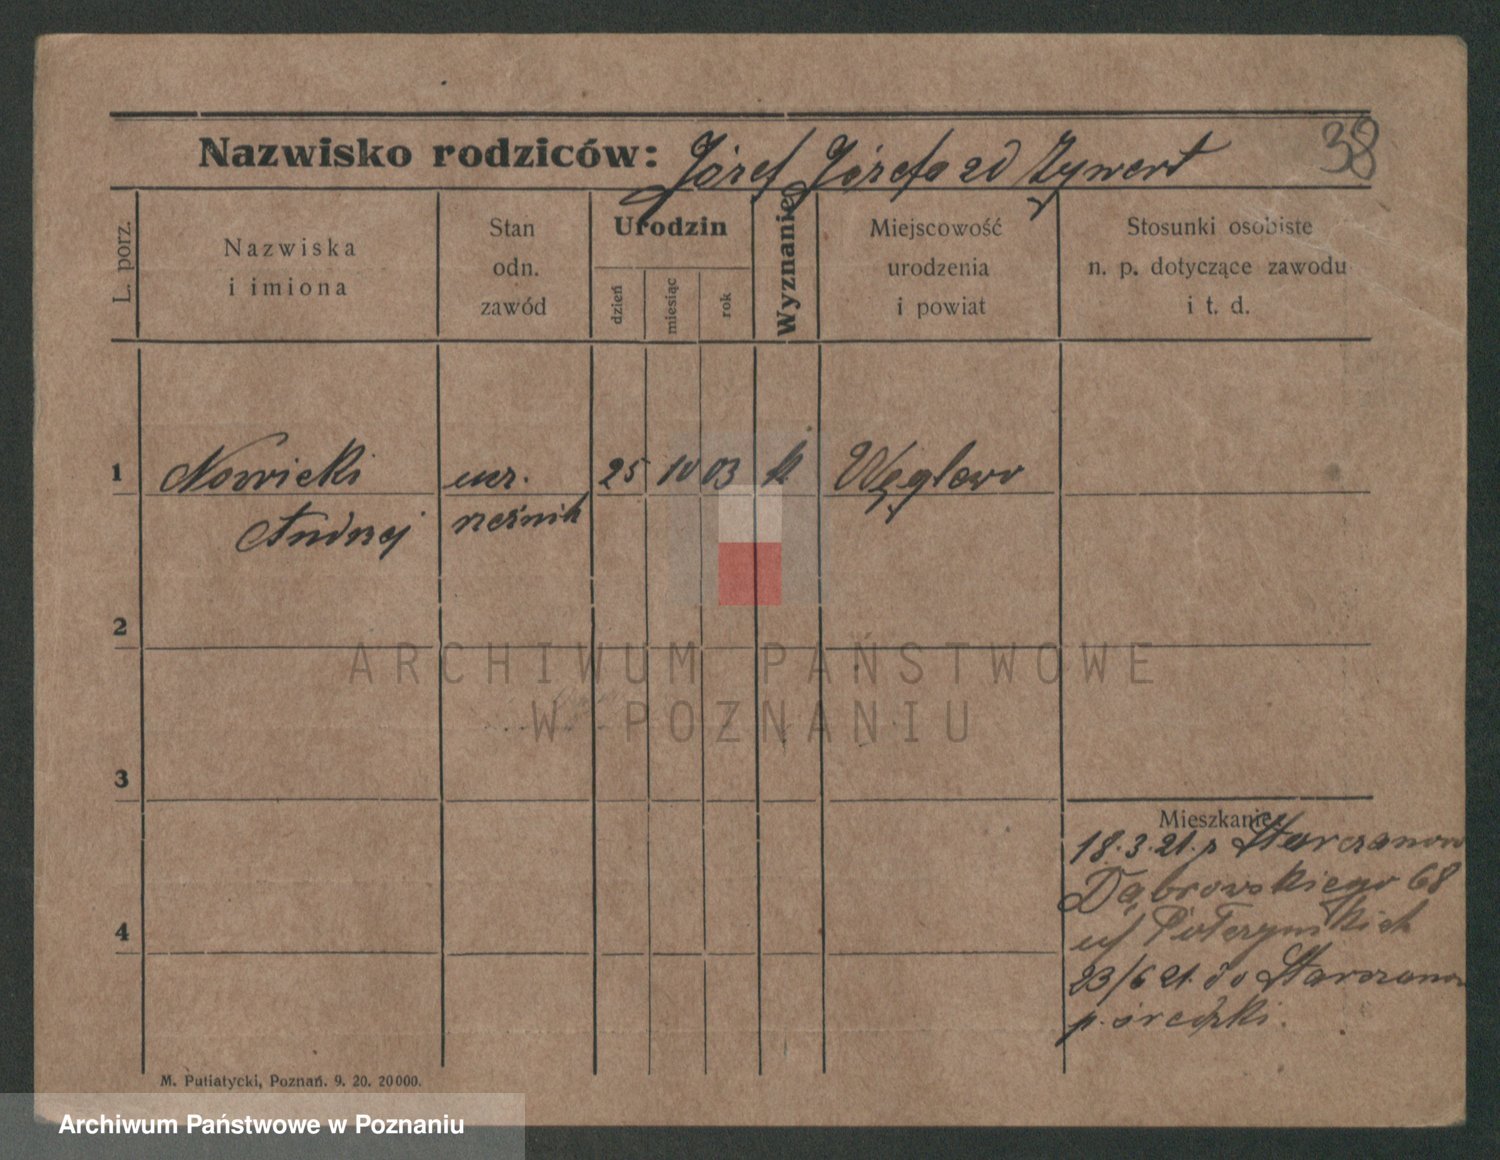 Nazwisko rodziców: Józef Józefa zd Zywert 38
L. porz.
Nazwiska
i imiona
Stan
odn.
zawód
Urodzin
dzień
miesiąc
rok
Wyznanie
Miejscowość
urodzenia
i powiat
Stosunki osobiste
n. p. dotyczące zawodu
i t. d.
1 Nowicki ucz. 25 10 03 k Węglewo
Andrzej rzeźnik
2
ARCHIWUM PAŃSTWOWE
W POZNANIU
3
Mieszkanie:
18.3.21. z Starczanowo
Dąbrowskiego 68
u/
4
23/6 21. do Starczanowo
p. średzki.
M. Putiatycki, Poznań. 9. 20. 20000.
Archiwum Państwowe w Poznaniu